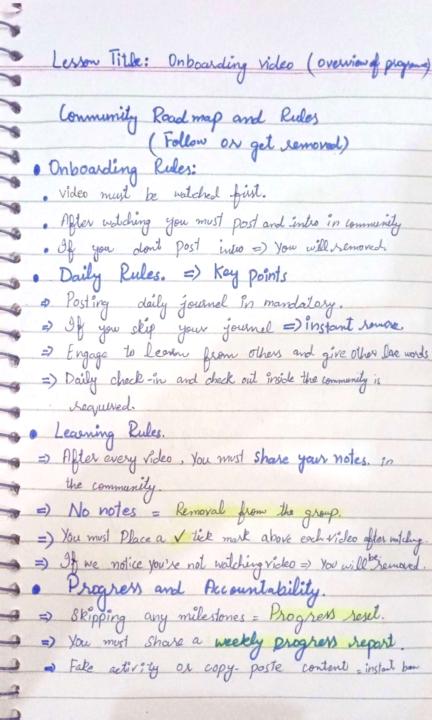 Lesson Title: Onboarding video (overview of programe)
Community Roadmap and Rules
(Follow or get removed)
• Onboarding Rules:
• video must be watched first.
• After watching you must post and intro in community
• If you dont post intro => You will removed.
• Daily Rules. => Key points
=> Posting daily journal in mandatory.
=> If you skip your journal => instant remove.
=> Engage to learn from others and give other words
=> Daily check-in and check out inside the community is
required.
• Learning Rules.
=> After every video, you must share your notes. in
the community.
=> No notes = Removal from the group.
=> You must Place a ✓ tick mark above each video after watching.
=> If we notice you're not watching video => You will be removed.
• Progress and Accountability.
=> Skipping any milestones = Progress reset.
=> You must share a weekly progress report.
=> Fake activity or copy-paste content = instant ban